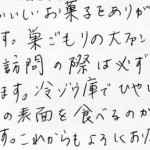 かいいお菓子をありが
す。巣ごもりの大ファン
訪問の際は必ず
ます。冷ゾウ庫でひやし
の表面を食べるのか
す。これからもよろしくおり